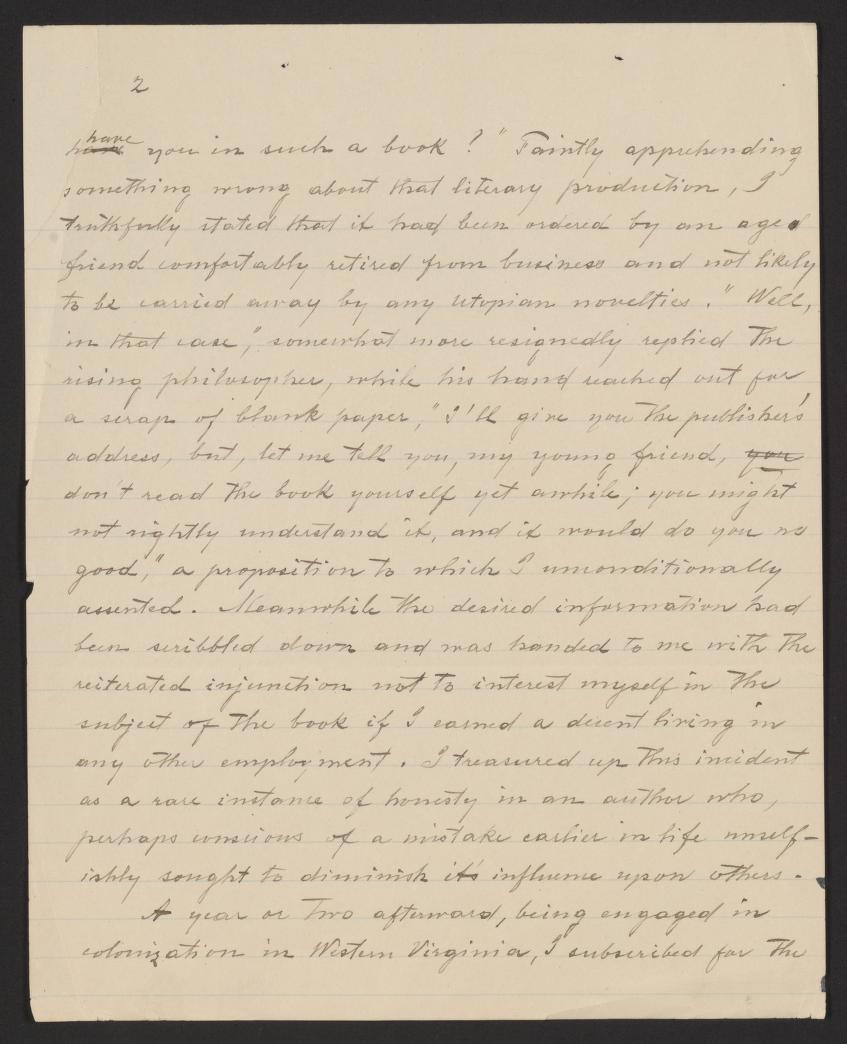 2
have
have you in such a book?" Faintly apprehending
something wrong about that literary production, I
truthfully stated that it had been ordered by an aged
friend comfortably retired from business and not likely
to be carried away by any utopian novelties. "Well,
in that case," somewhat more resignedly replied the
rising philosopher, while his hand reached out for
a scrap of blank paper, "I'll give you the publisher's
address, but, let me tell you, my young friend, you
don't read the book yourself yet awhile; you might
not rightly understand it, and it would do you no
good," a proposition to which I unconditionally
assented. Meanwhile the desired information had
been scribbled down and was handed to me with the
reiterated injunction not to interest myself in the
subject of the book if I earned a decent living in
any other employment. I treasured up this incident
as a rare instance of honesty in an author who,
perhaps conscious of a mistake earlier in life unself-
ishly sought to diminish it's influence upon others.
A year or two afterward, being engaged in
colonization in Western Virginia, I subscribed for the